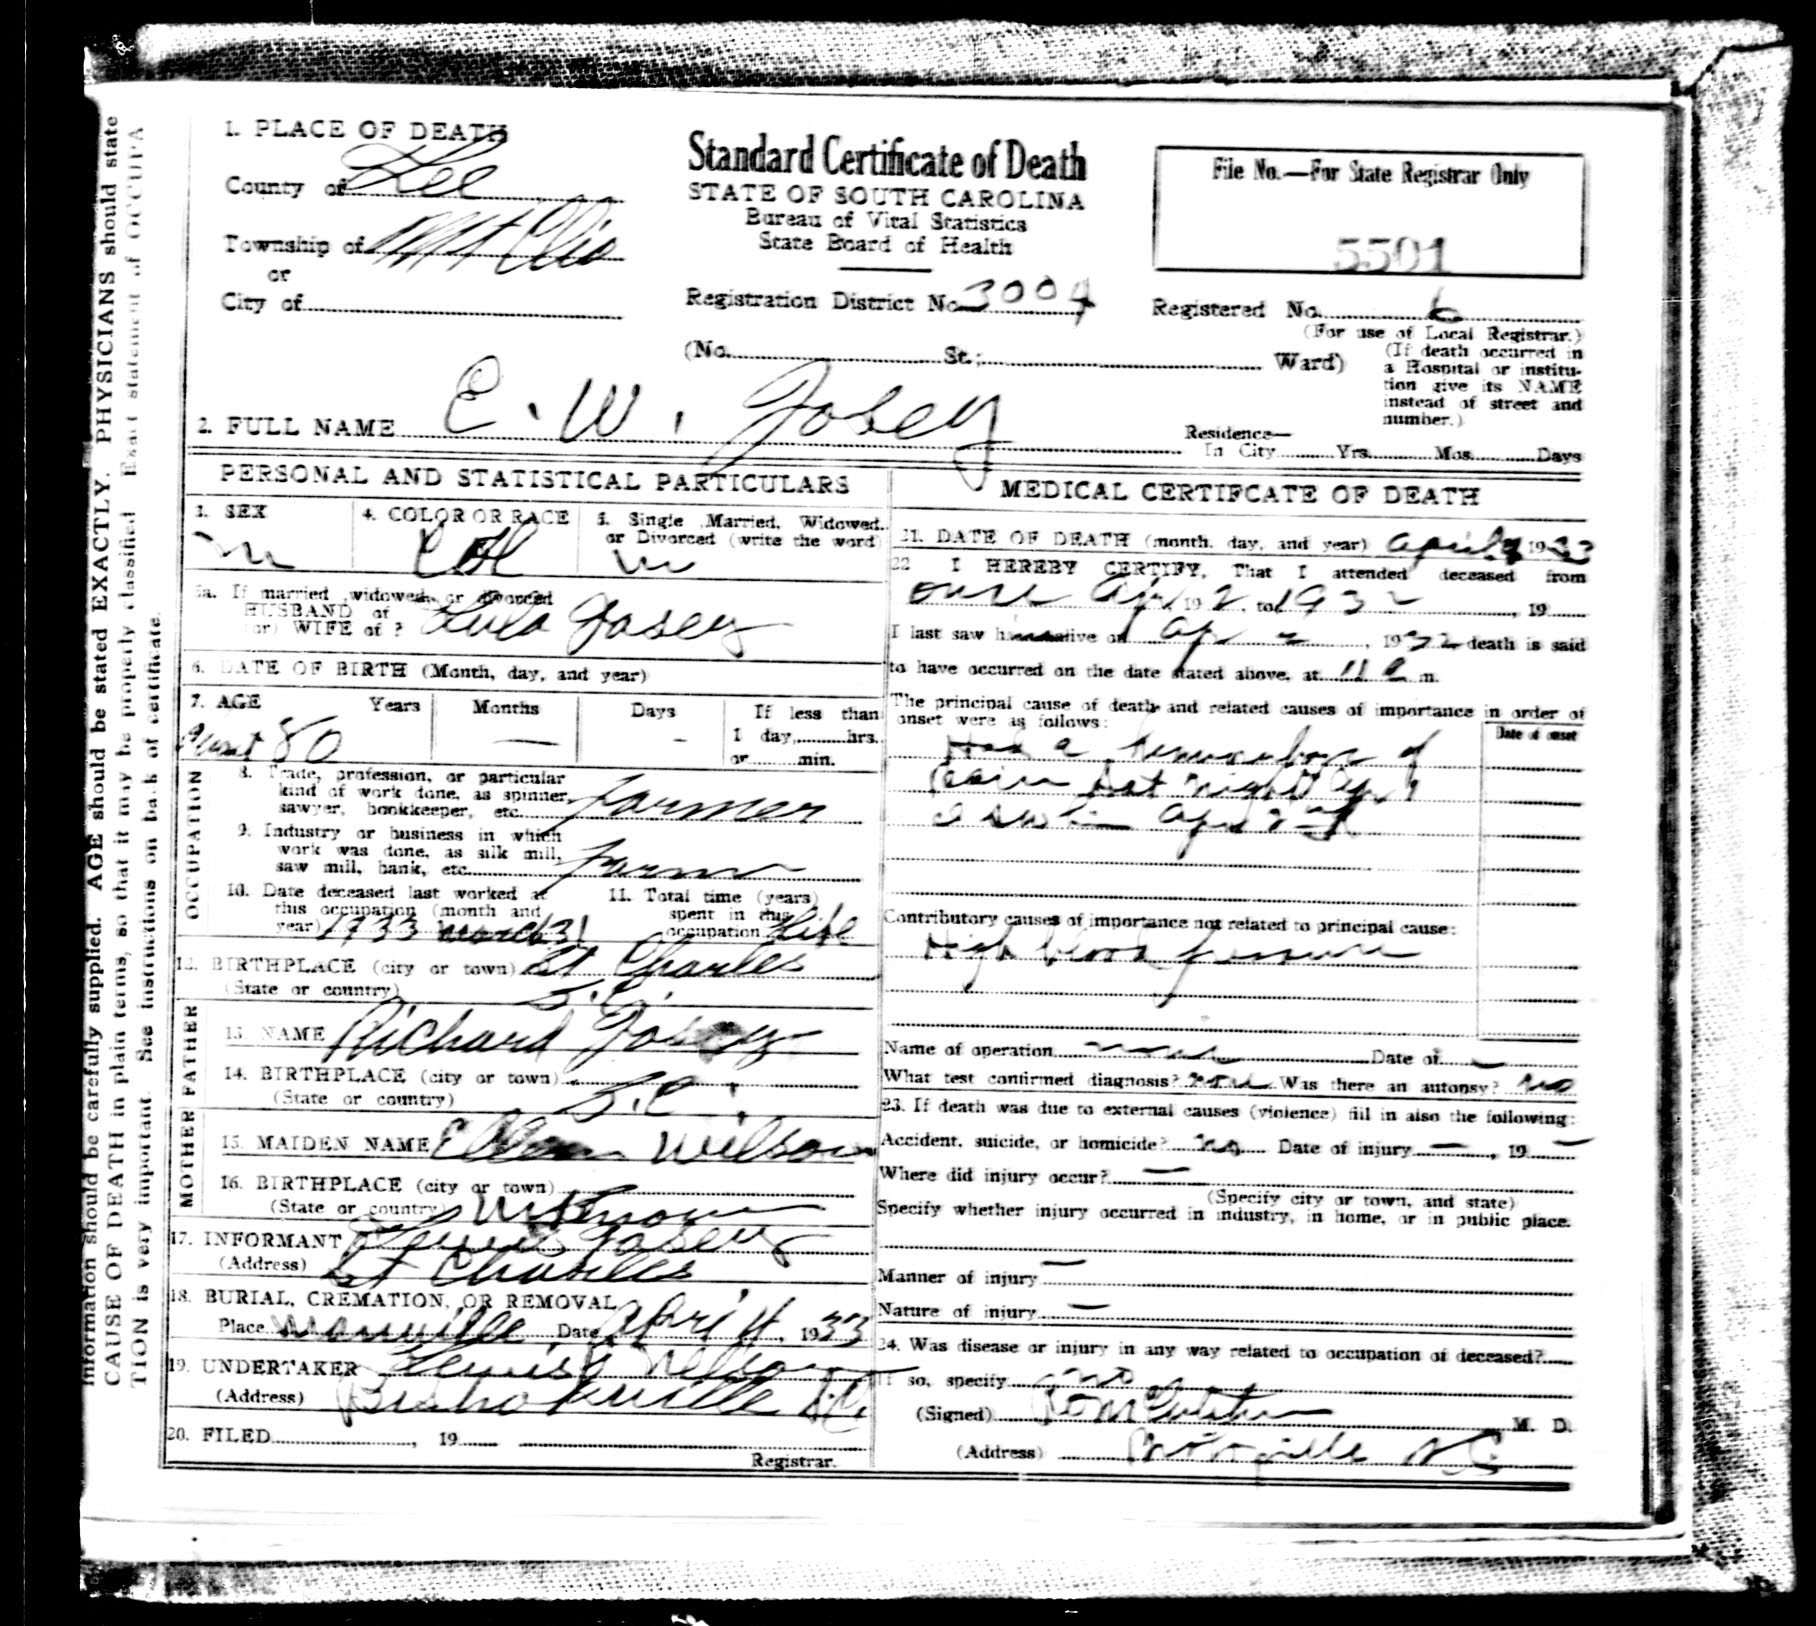 information should be carefully supplied. AGE should be stated EXACTLY. PHYSICIANS should state
CAUSE OF DEATH in plain terms, so that it may be properly classified. Exact statement of OCCUPA
TION is very important. See instructions on back of certificate.
1. PLACE OF DEATH
County of Lee
Township of Mt Clio
or
City of
Standard Certificate of Death
STATE OF SOUTH CAROLINA
Bureau of Vital Statistics
State Board of Health
File No.—For State Registrar Only
5501
Registration District No. 3004
Registered No. 6
(For use of Local Registrar.)
(No. St.; Ward)
(If death occurred in
a Hospital or institu-
tion give its NAME
instead of street and
number.)
2. FULL NAME E. W. Josey
Residence—
In City Yrs. Mos. Days
PERSONAL AND STATISTICAL PARTICULARS
3. SEX
m
4. COLOR OR RACE
Col
5. Single, Married, Widowed,
or Divorced (write the word)
m
5a. If married, widowed, or divorced
HUSBAND of
(or) WIFE of ? Lula Josey
6. DATE OF BIRTH (Month, day, and year)
7. AGE Years Months Days If less than
80 — - 1 day, hrs.
or min.
OCCUPATION
8. Trade, profession, or particular
kind of work done, as spinner,
sawyer, bookkeeper, etc. Farmer
9. Industry or business in which
work was done, as silk mill,
saw mill, bank, etc. Farm
10. Date deceased last worked at
this occupation (month and
year) 1933 March 31
11. Total time (years)
spent in this
occupation Life
12. BIRTHPLACE (city or town) St Charles
(State or country) S.C.
FATHER
13. NAME Richard Josey
14. BIRTHPLACE (city or town)
(State or country) S.C.
MOTHER
15. MAIDEN NAME Ellen Wilson
16. BIRTHPLACE (city or town)
(State or country) Unknown
17. INFORMANT Josey
(Address) St Charles
18. BURIAL, CREMATION, OR REMOVAL
Place Manville Date April 4, 1933
19. UNDERTAKER
(Address) Bishopville S.C.
20. FILED , 19
Registrar.
MEDICAL CERTIFCATE OF DEATH
21. DATE OF DEATH (month, day, and year) April 1933
22 I HEREBY CERTIFY, That I attended deceased from
once Apr 19 2, to 1932, 19
I last saw him alive on Ap 2, 19 32 death is said
to have occurred on the date stated above, at 11 a m.
The principal cause of death and related causes of importance in order of
onset were as follows:
Date of onset
Had a of
at night
April 2nd
Contributory causes of importance not related to principal cause:
High blood pressure
Name of operation none Date of
What test confirmed diagnosis? none Was there an autopsy? no
23. If death was due to external causes (violence) fill in also the following:
Accident, suicide, or homicide? no Date of injury —, 19 —
Where did injury occur? —
(Specify city or town, and state)
Specify whether injury occurred in industry, in home, or in public place.
Manner of injury —
Nature of injury —
24. Was disease or injury in any way related to occupation of deceased?
If so, specify no
(Signed) M. D.
(Address) S C